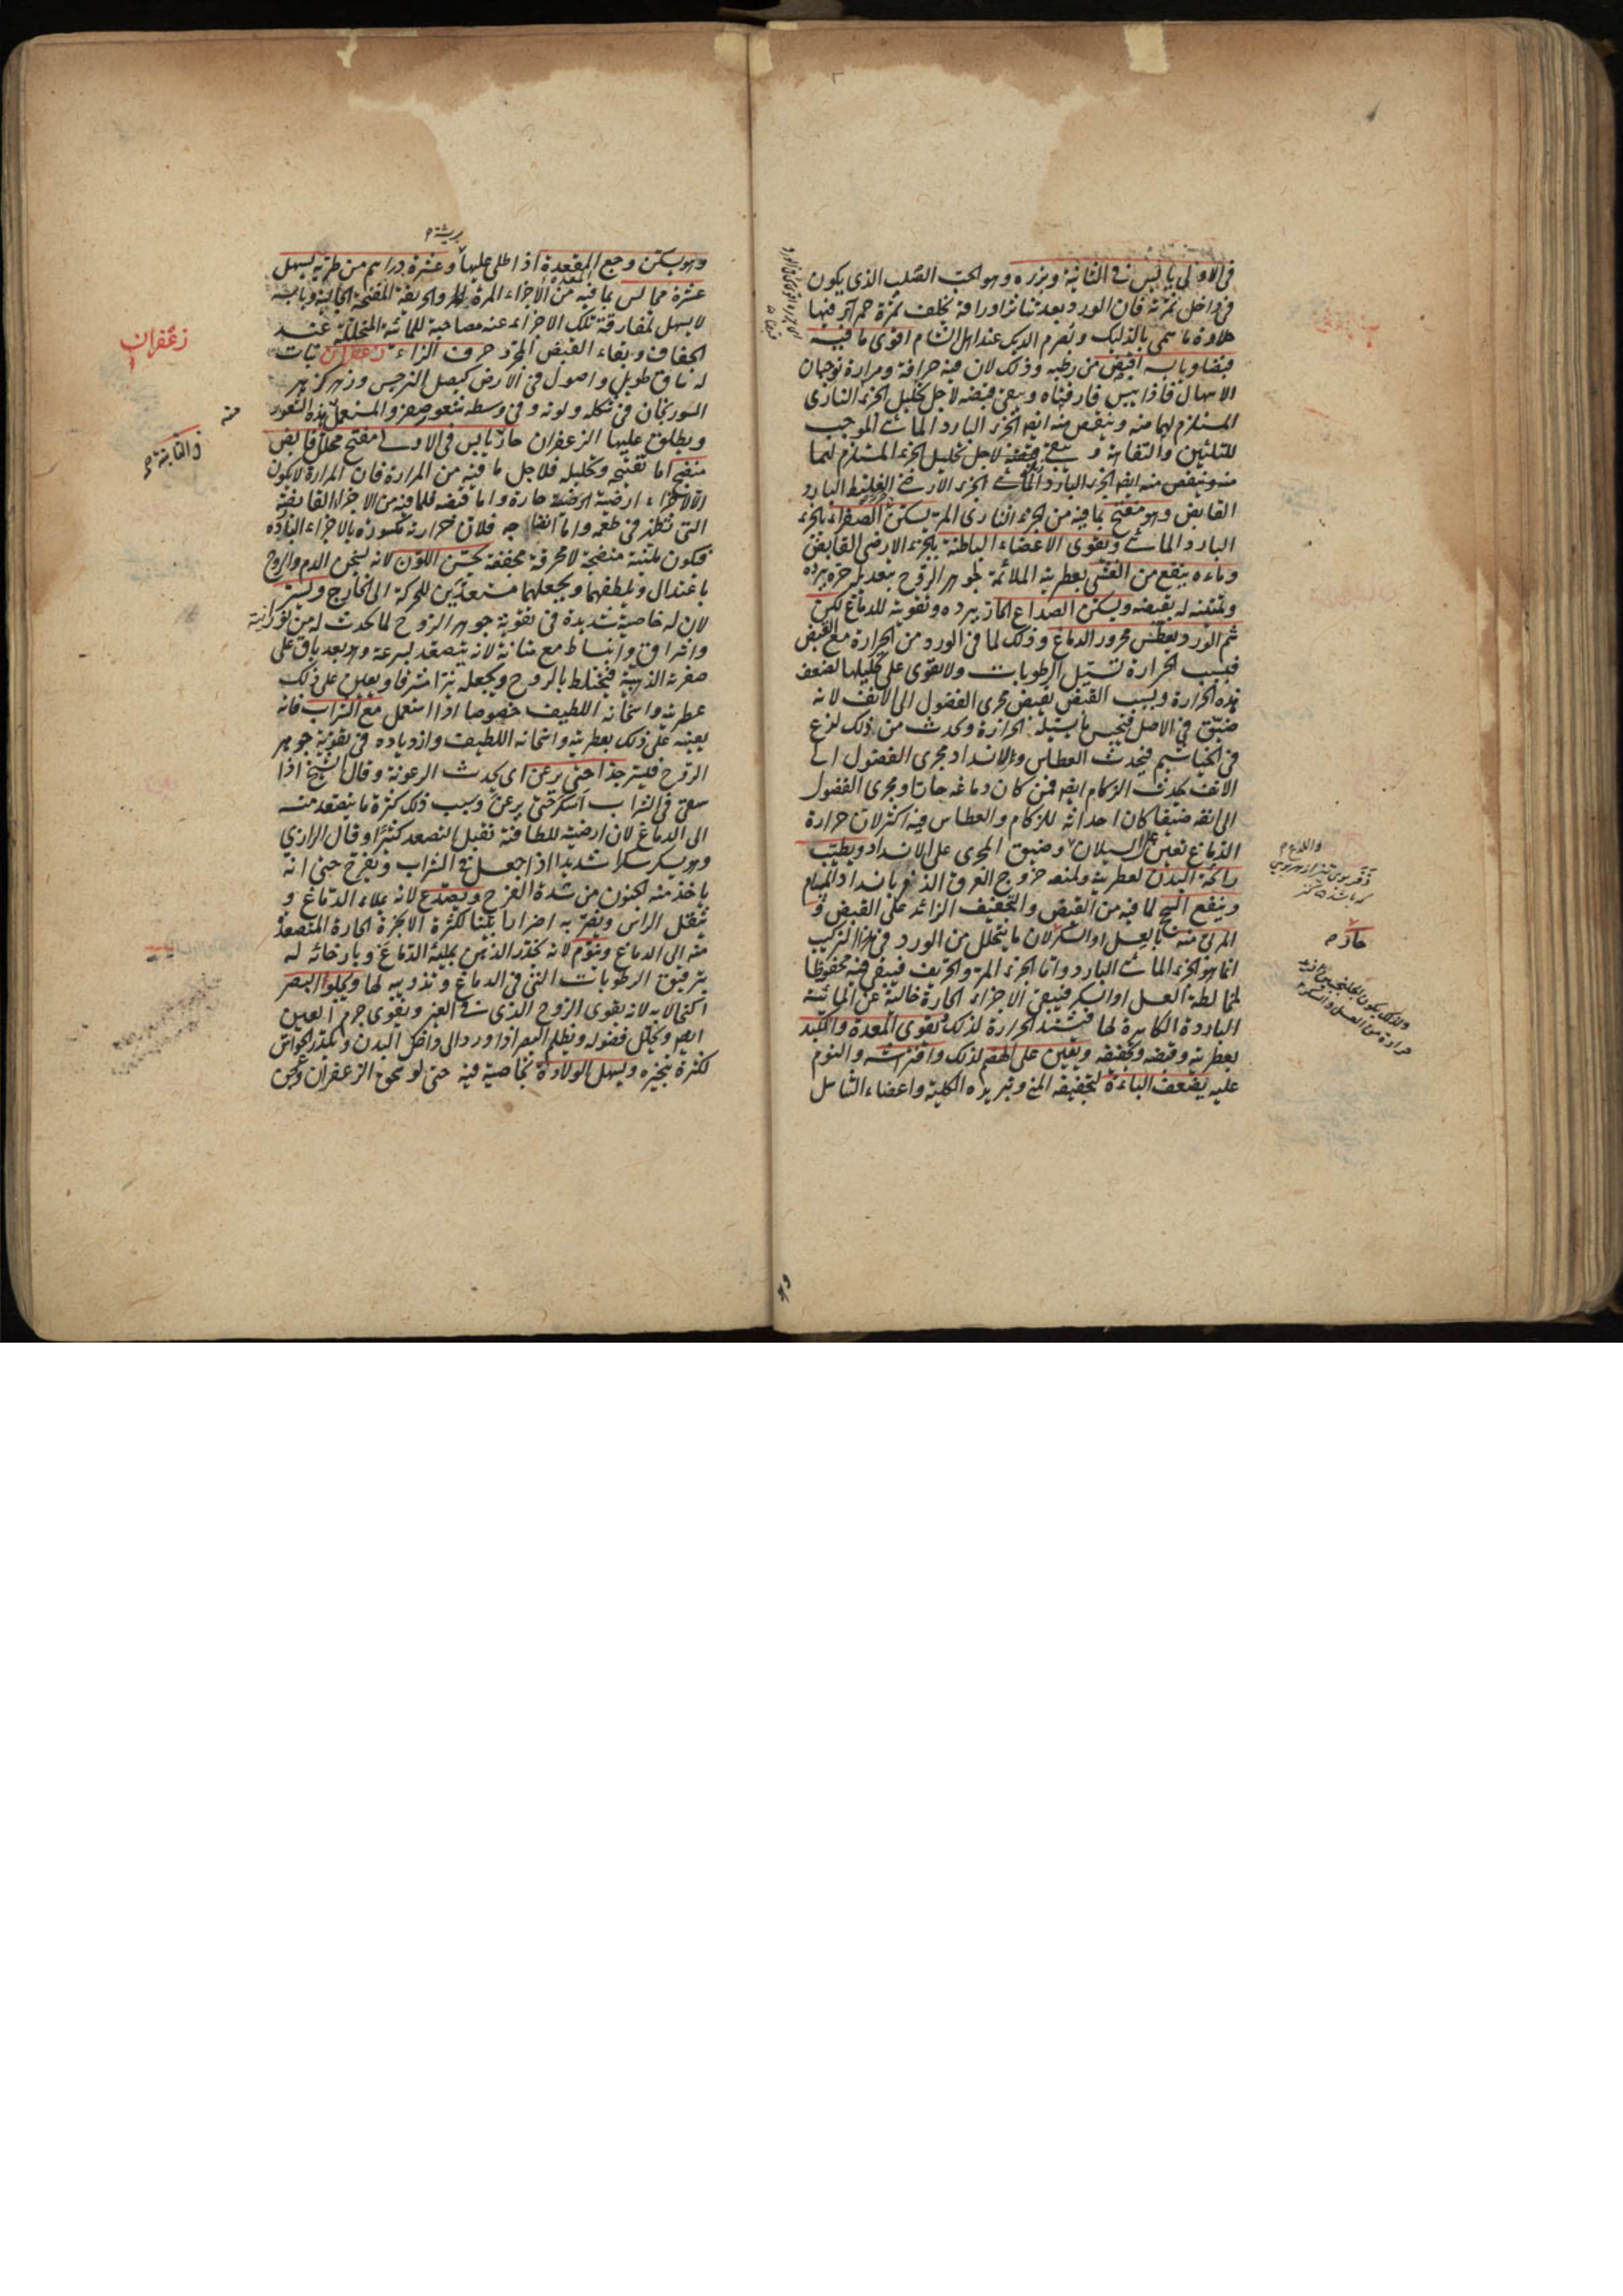 في الاولى يابس في الثانية وبزره وهو الحب الصلب الذي يكون
في داخل ثمرته فان الورد بعد تناثر اوراقه يخلف ثمرة حمراء فيها
حلاوة ما سمي بالدليك وبصرم الديك عند اهل الشام اقوى ما فيه
قبضا ويابسه اقبض من رطبه وذلك لان فيه حرافة ومرارة توجبان
الاسهال فاذا يبس فارقتاه ويبقى قبضه لاجل تحليل الجزء الناري
المستلزم لهما منه وينقص منه ايضا الجزء البارد المائي الموجب
للتليين والتفاهة و يبقى قبضه لاجل تحليل الجزء المستلزم لهما
منه وينقص منه ايضا الجزء البارد المائي الجزء الارضي الغليظ البارد
القابض وهو مفتح بما فيه من الجزء الناري المر يسكن الصفراء بالجزء
البارد المائي ويقوى الاعضاء الباطنة بالجزء الارضي القابض
وماءه ينفع من الغشي بعطريته الملائمة لجوهر الروح بتعديل حره ببرده
وتمتينه له بقبضه ويسكن الصداع الحار ببرده وتقويته للدماغ لكن
شم الورد يعطس محرور الدماغ وذلك لما في الورد من الحرارة مع القبض
فبسبب الحرارة تسيل الرطوبات ولا يقوى على تحليلها لضعف
هذه الحرارة وبسبب القبض يقبض مجرى الفضول الى الانف لانه
ضيق في الاصل فيحبس ما يسيله الحرارة ويحدث من ذلك لذع
في الخياشيم فيحدث العطاس ولانسداد مجرى الفضول الى
الانف يحدث الزكام ايضا فمن كان دماغه حارا ومجرى الفضول
الى انفه ضيقا كان احداثه للزكام والعطاس فيه اكثر لان حرارة
الدماغ تعين على السيلان وضيق المجرى على الانسداد ويطيب
رائحة البدن لعطريته ولمنعه خروج العرق الذفر بانسداد المسام
وينفع السحج لما فيه من القبض والتجفيف الزائد على القبض و
المربى منه بالعسل او السكر لان ما يتحلل من الورد في هذا التركيب
انما هو الجزء المائي البارد واما الجزء المر والحريف فيبقى فيه محفوظا
لمخالطة العسل او السكر فيبقى الاجزاء الحارة خالية عن المائية
الباردة الكاسرة لها فيشتد الحرارة لذلك يقوى المعدة والكبد
بعطريته وقبضه وتجفيفه ويعين على الهضم لذلك وافتراشه والنوم
عليه يضعف الباءة لتجفيفه المني وتبريده الكلية واعضاء التناسل
حار م
ولذلك يكون الجلنجبين زيد
حرارة من العسل والسكر م
بريشة م
وهو يسكن وجع المقعدة اذا طلى عليها وعشرة دراهم من طريه يسهل
عشرة مجالس بما فيه من الاجزاء المرة والحريفة المفتحة الجالية ويابسه
لا يسهل لمفارقة تلك الاجزاء عنه مصاحبة للمائية المتحللة عند
الجفاف وبقاء القبض المجرد حرف الزاء زعفران نبات
له ساق طويل واصول في الارض كبصل النرجس وزهر كزهر
السورنجان في شكله ولونه وفي وسطه شعور صفر والمستعمل هذه الشعور
ويطلق عليها الزعفران حار يابس في الاولى مفتح محلل قابض
منضج اما تفتيحه وتحليله فلاجل ما فيه من المرارة فان المرارة لا يكون
الا لاجزاء ارضية حارة واما قبضه فلما فيه من الاجزاء القابضة
التي تظهر في طعمه واما انضاجه فلان حرارته مكسورة بالاجزاء الباردة
فيكون ملينة منضجة لا محرقة مجففة يحسن اللون لانه يسخن الدم والروح
باعتدال ويلطفهما ويجعلهما مستعدين للحركة الى الخارج ويسر
لان له خاصية شديدة في تقوية جوهر الروح لما يحدث له من نورانية
واشراق وانبساط مع متانة لانه يتصعد بسرعة وهو بعد باق على
صفرته الذهبية فيختلط بالروح ويجعله نيرا مشرقا ويعين على ذلك
عطريته واسخانه اللطيف خصوصا اذا استعمل مع الشراب فانه
يعينه على ذلك بعطريته واسخانه اللطيف وازدياده في تقوية جوهر
الروح فيسر جدا حتى يرعن اى يحدث الرعونة وقال الشيخ اذا
سقى في الشراب اسكر حتى يرعن وسبب ذلك كثرة ما يتصعد منه
الى الدماغ لان ارضيته للطافته تقبل التصعد كثيرا وقال الرازي
وهو يسكر سكرا شديدا اذا جعل في الشراب ويفرح حتى انه
ياخذ منه الجنون من شدة الفرح ويصدع لانه يملاء الدماغ و
يثقل الراس ويضر به اضرارا بينا لكثرة الابخرة الحارة المتصعدة
منه الى الدماغ وينوم لانه يخدر الذهن بملية الدماغ وبارخائه له
بترقيق الرطوبات التي في الدماغ وتذويبه لها ويجلو البصر
اكتحالا به لانه يقوى الروح الذي في العين ويقوى جرم العين
ايضا ويحلل فضوله ويظلم البصر اذا ورد الى داخل البدن ويكدر الحواس
لكثرة تبخيره ويسهل الولادة بخاصية فيه حتى لو سحق الزعفران وعجن
زعفران